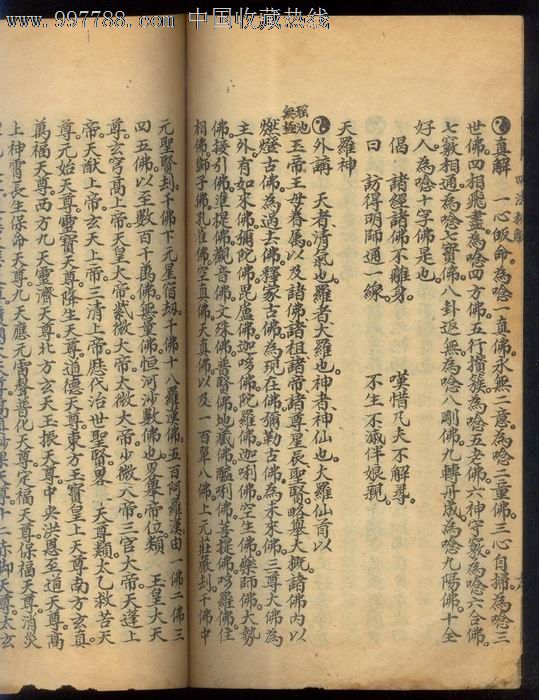 www.997788.com 中国收藏热线
直解 一心皈命。為唸一真佛。永無二意。為唸二童佛。三心自掃。為唸三
世佛。四相飛盡。為唸四方佛。五行攢簇。為唸五老佛。六神守竅。為唸六合佛。
七竅相通。為唸七寶佛。八卦返無。為唸八剛佛。九轉丹成。為唸九陽佛。十全
好人為唸十字佛是也。
偈 諸經諸佛不離身。 嘆惜凡夫不解尋。
曰 訪得明師通一線。 不生不滅伴娘親。
天羅神
外講 天者清氣也。羅者大羅也。神者神仙也。大羅仙首以
瑤池無極
玉帝王母眷屬以及諸佛諸祖諸帝諸尊星辰聖賢略舉大概。諸佛內以
燃燈古佛為過去佛。釋家古佛為現在佛。彌勒古佛為未來佛。三尊大佛為
主外有如來佛。彌陀佛。毘盧佛。迦吻佛。陀羅佛。迦唎佛。空生佛。藥師佛。大勢
佛。接引佛。準提佛。觀音佛。文殊佛。普賢佛。地藏佛。醯唎佛。菩提佛。吻羅佛。住
相佛。獅子佛。孔雀佛。空真佛。天真佛。以及一百單八佛上元莊嚴刦千佛中
元聖賢刦千佛下元星宿刦千佛十八羅漢佛。五百阿羅漢。由一佛二佛三
四五佛以至數百千萬佛。無量佛。恒河沙數佛也。畧舉帝位類 玉皇大天
尊玄穹高上帝。天皇大帝。紫微大帝。太微大帝。少微八帝。三官大帝。天蓬上
帝。天猷上帝。玄天上帝。三清上帝。歷代治世聖賢畧 天尊類太乙救苦天
尊。元始天尊。靈寶天尊。降生天尊。道德天尊。東方玉寶皇上天尊。南方玄真
萬福天尊。西方九天靈濟天尊。北方玄天玉振天尊。中央洪恩至道天尊。高
上神霄長生保命天尊。九天應元雷聲普化天尊。定福天尊。保福天尊。消災